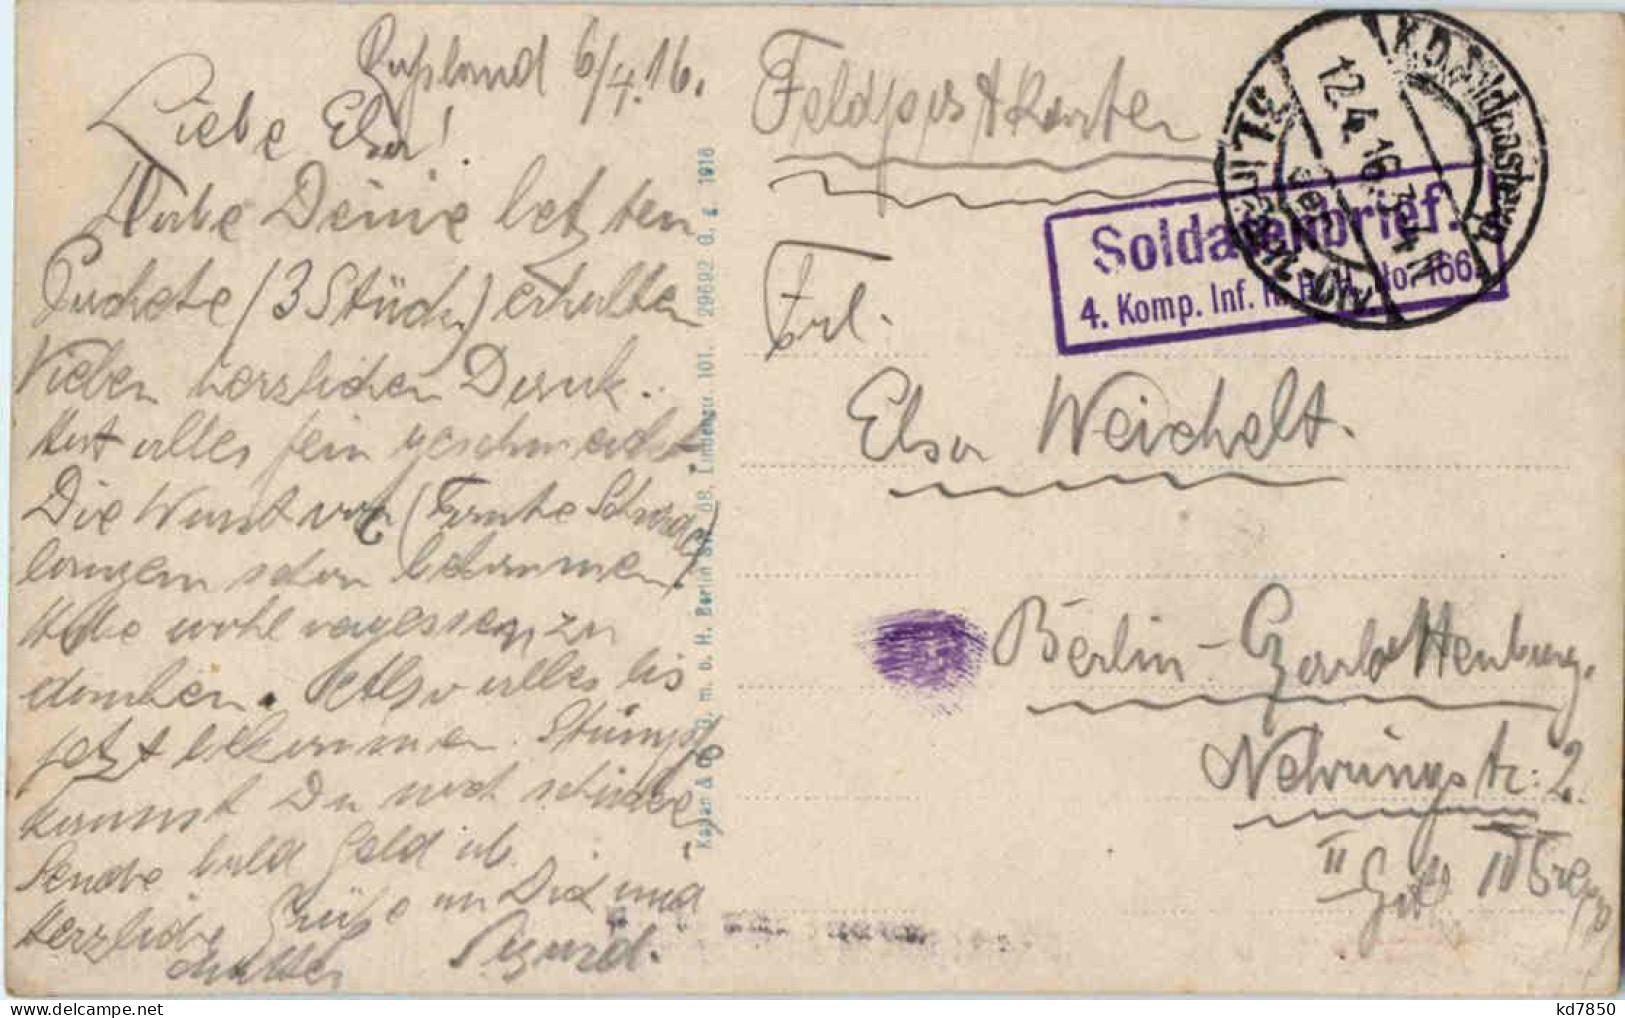 Russland 6/4.16.
Liebe Elsa!
Habe Deine letzten
Packete (3 Stück) erhalten
Vielen herzlichen Dank..
Hat alles fein geschmeckt
Die Wurst von (Tante
langem schon bekommen)
Habe wohl vergessen zu
danken. Also alles bis
jetzt bekommen. Strümpfe
kannst Du noch schicken
Sende bald Geld ab.
Herzliche Grüße an Dich und
Mutter
Sigurd.
Kosan & Co G. m. b. H. Berlin SW 68, Lindenstr. 101. / 29692 G. 4 1916
Feldpostkarte
K.D. Feldpostexp.
12.4.16. 3-4 N
der
51. Inf
Soldatenbrief.
4. Komp. Inf. No. 166.
Frl.
Elsa Weichelt.
Berlin-Charlottenburg.
Nehringstr. 2.
II III